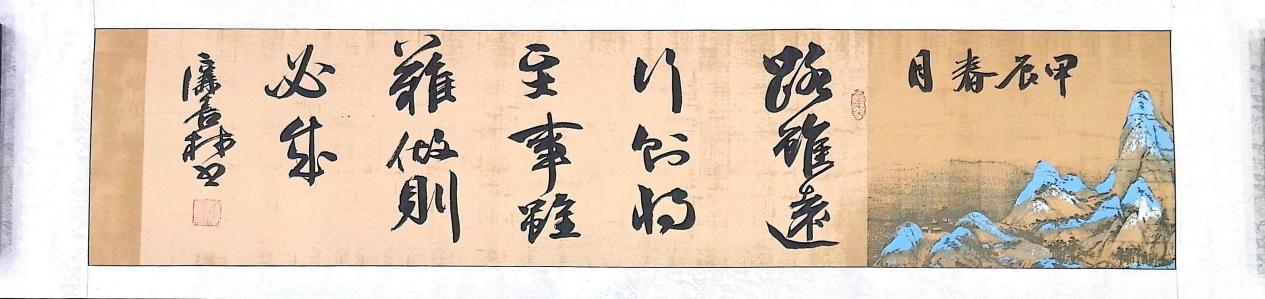 甲辰春月
路雖遠
行則将
至事雖
難做則
必成
林书